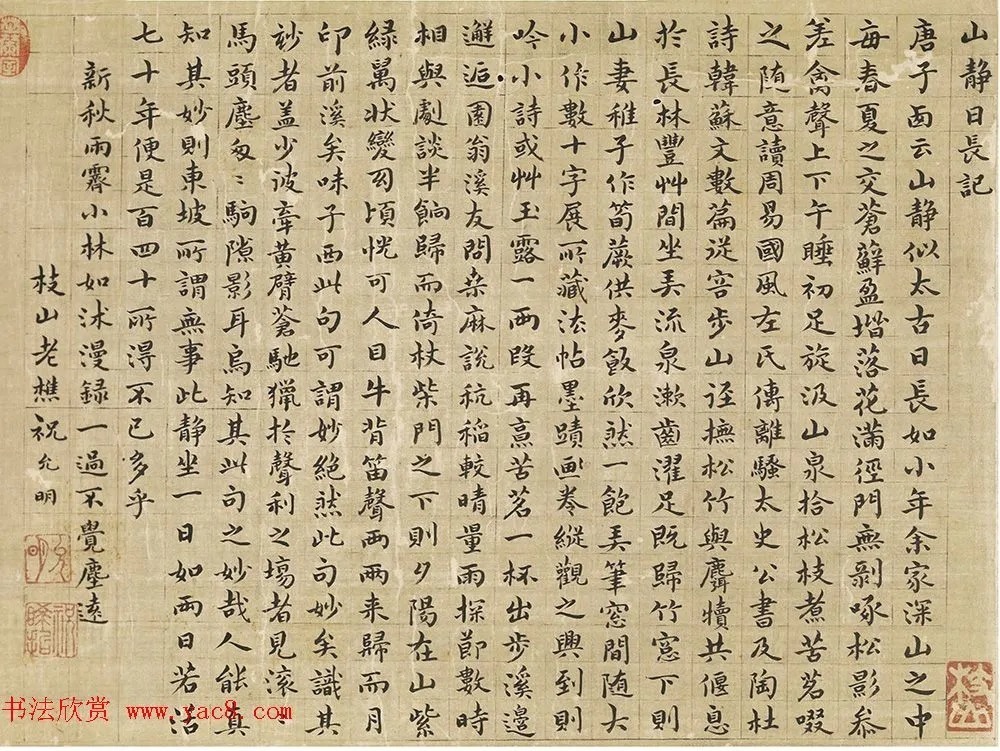 山静日長記
唐子西云山静似太古日長如小年余家深山之中
每春夏之交蒼蘚盈堦落花滿徑門無剥啄松影叅
差禽聲上下午睡初足旋汲山泉拾松枝煮苦茗啜
之随意讀周易國風左氏傳離騷太史公書及陶杜
詩韓蘇文數篇従容步山逕撫松竹與麛犢共偃息
於長林豐艸間坐弄流泉漱齒濯足既歸竹窻下則
山妻稚子作筍蕨供麥飯欣然一飽弄筆窓間随大
小作數十字展所藏法帖墨蹟画卷縱觀之興到則
吟小詩或艸玉露一兩段再烹苦茗一杯出步溪邊
邂逅園翁溪友問桒麻說秔稲較晴量雨探節數時
相與劇談半餉歸而倚杖柴門之下則夕陽在山紫
緑萬状變幻頃恍可人目牛背笛聲兩兩来歸而月
印前溪矣味子西此句可謂妙絶然此句妙矣識其
妙者盖少彼牽黄臂蒼馳獵於聲利之塲者見滚滚
馬頭塵匆匆駒隙影耳烏知其此句之妙哉人能真
知其妙則東坡所謂無事此静坐一日如兩日若活
七十年便是百四十所淂不已多乎
新秋雨霽小林如沐漫録一過不覺塵遠
枝山老樵祝允明
书法欣赏 www.yac8.com